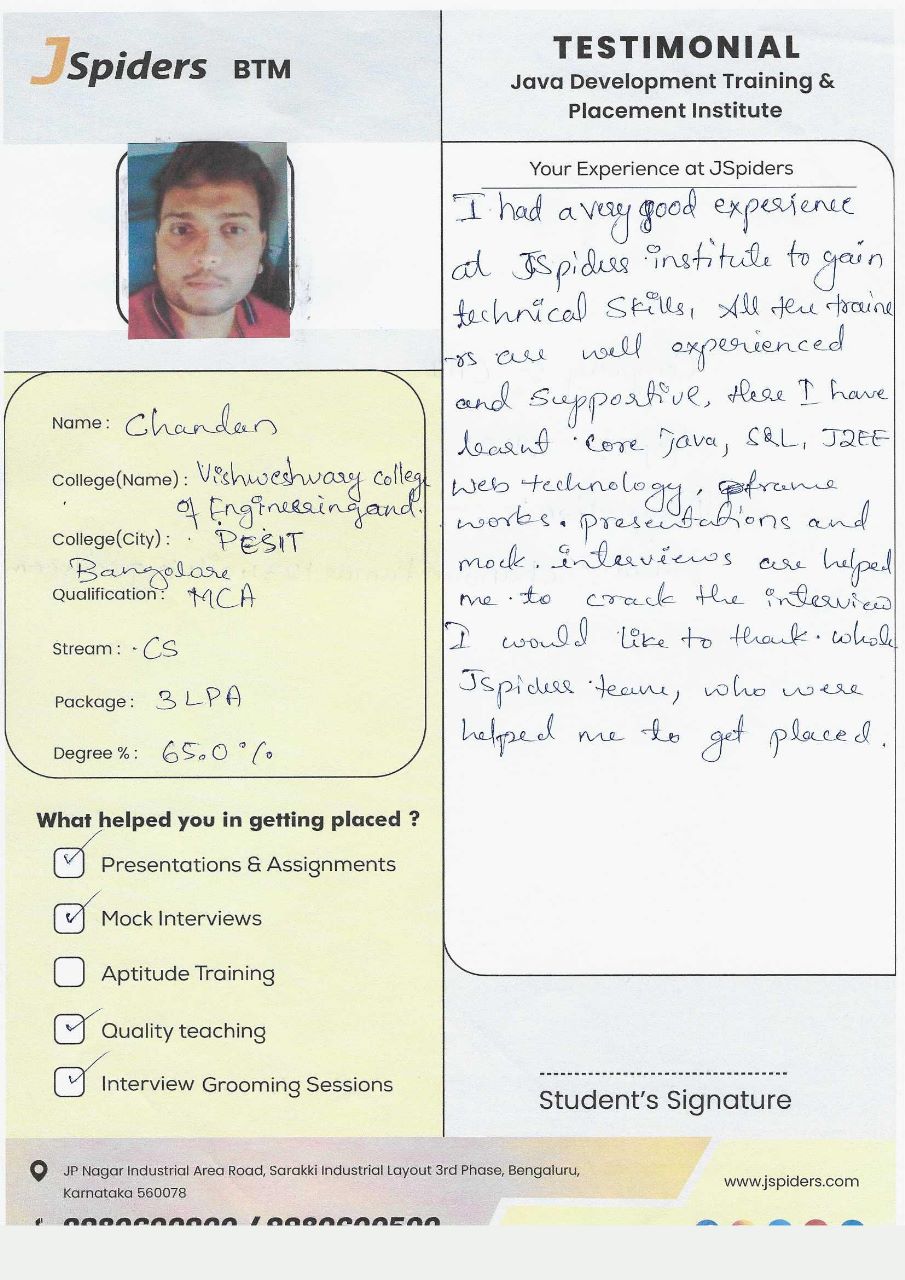 JSpiders BTM
TESTIMONIAL
Java Development Training &
Placement Institute
Your Experience at JSpiders
I had a very good experience
at JSpiders institute to gain
technical Skills, All the traine
-rs are well experienced
and supportive, Here I have
learnt core java, SQL, J2EE
Web technology, frame
works. presentations and
mock interviews are helped
me to crack the interview
I would like to thank whole
JSpiders team, who were
helped me to get placed.
Name : Chandan
College(Name) : Vishweshwary colleg
of Engineering and
College(City) : PESIT
Bangolare
Qualification : MCA
Stream : CS
Package : 3 LPA
Degree % : 65.0%
What helped you in getting placed ?
Presentations & Assignments
Mock Interviews
Aptitude Training
Quality teaching
Interview Grooming Sessions
Student's Signature
JP Nagar Industrial Area Road, Sarakki Industrial Layout 3rd Phase, Bengaluru,
Karnataka 560078
www.jspiders.com